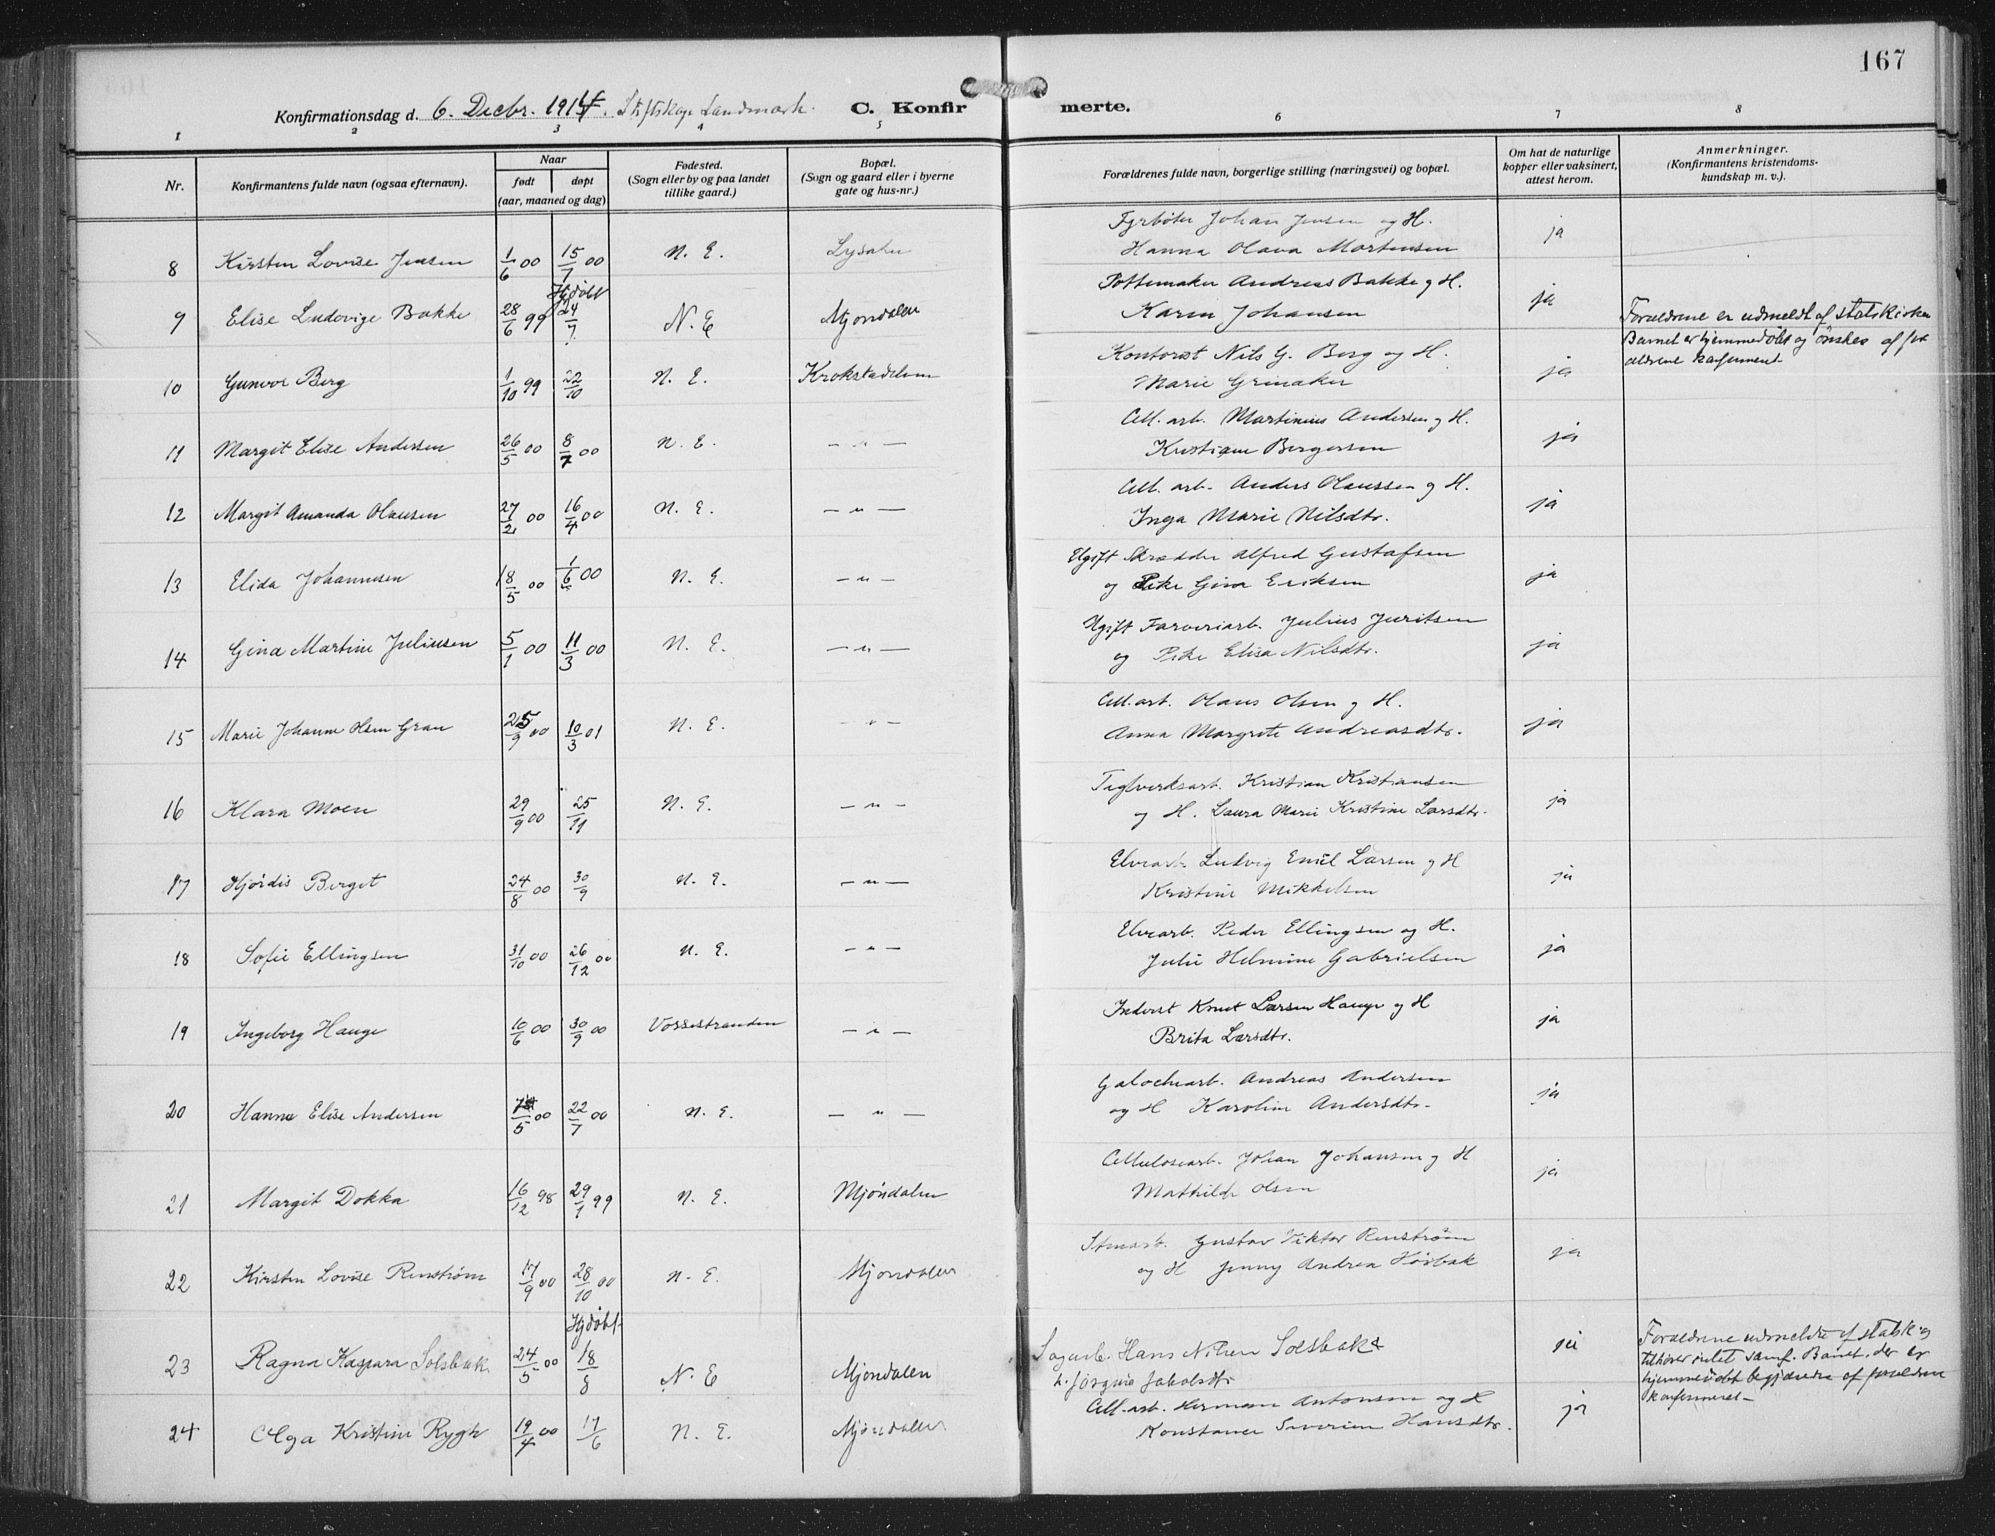 167
Konfirmationsdag d. 6. Decbr. 1914. Landmark. C. Konfirmerte.
1 2 3 4 5 6 7 8
Nr.
Konfirmantens fulde navn (ogsaa efternavn).
Naar
født døpt
(aar, maaned og dag)
Fødested.
(Sogn eller by og paa landet
tillike gaard.)
Bopæl.
(Sogn og gaard eller i byerne
gate og hus-nr.)
Forældrenes fulde navn, borgerlige stilling (næringsvei) og bopæl.
Om hat de naturlige
kopper eller vaksinert,
attest herom.
Anmerkninger.
(Konfirmantens kristendoms-
kundskap m. v.).
Fyrbøter Johan Jensen og H.
8 Kirsten Lovise Jensen 1/6 00 15/7 00 N. E. Lysaker Hanna Olava Mortensen ja
Hjdøbt
Pottemaker Andreas Bakke og H.
9 Elise Ludovige Bakke 28/6 99 24/7 N. E Mjøndalen Karen Johansen ja
Forældrene er udmeldt af statskirken
Barnet er hjemmedøbt og ønskes af for
ældrene konfirmert
Kontorist Nils G. Berg og H.
10 Gunvor Berg 1/10 99 22/10 N. E. Krokstadelven Marie Grinaker ja
Cell. arb. Martinius Andersen og H.
11 Margit Elise Andersen 26/5 00 8/7 00 N. E. — " — Kristiane Bergersen ja
Cell. arb. Anders Olaussen og H.
12 Margit Amanda Olausen 27/2 00 16/4 00 N. E. — " — Inga Marie Nilsdtr. ja
Ugift Skrædder Alfred Gustafsen
13 Elida Johannesen 18/5 00 1/6 00 N. E. — " — og Pike Gina Eriksen ja
Ugift Farveriarb. Julius Juritsen
14 Gina Martine Juliusen 5/1 00 11/3 00 N. E. — " — og Pike Elisa Nilsdtr. ja
Cell. arb. Olaus Olsen og H.
15 Marie Johanne Gran 25/9 00 10/3 01 N. E. — " — Anna Margrete Andreasdtr. ja
Teglverksarb. Kristian Kristiansen
16 Klara Moen 29/9 00 25/11 N. E. — " — og H. Laura Marie Kristine Larsdtr. ja
Elvearb. Ludvig Emil Larsen og H
17 Hjørdis Berget 24/8 00 30/9 N. E. — " — Kristine Mikkelsen ja
Elvearb. Peder Ellingsen og H.
18 Sofie Ellingsen 31/10 00 26/12 00 N. E. — " — Julie Helmine Gabrielsen ja
Inderst Knut Larsen Hauge og H
19 Ingeborg Hauge 10/6 00 30/9 00 Vossestranden — " — Brita Larsdtr. ja
Galochearb. Andreas Andersen
20 Hanna Elise Andersen /5 00 22/7 00 N. E. — " — og H Karoline Andersdtr. ja
Cellulosearb. Johan Johansen og H
21 Margit Dokka 16/12 98 29/1 99 N. E. Mjøndalen Mathilde Olsen ja
Stenarb. Gustav Viktor Renstrøm
22 Kirsten Lovise Renstrøm 17/9 00 28/10 00 N. E. Mjøndalen og H Jenny Andrea Hørbak ja
Hjdøbt
Sagarb. Hans Nilsen Solsbak
23 Ragna Kaspara Solsbak 24/5 00 18/8 N. E Mjøndalen h. Jørgine Jakobsdtr ja
Forældrene udmeldte af statsk. og
tilhører intet samf. Barnet, der er
hjemmedøbt begjæredes af forældrene
konfirmeret—
Cell. arb. Herman Antonsen og H
24 Olga Kristine Rygh 19/4 00 17/6 N. E. Mjøndalen Konstance Severine Hansdtr. ja